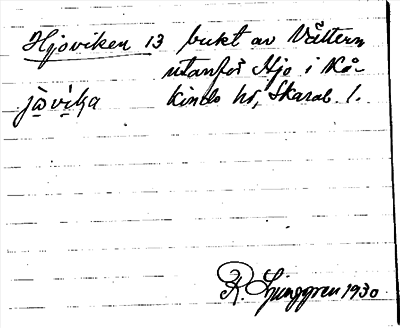 Hjoviken 13 bukt av Vättern
utanför Hjo i Kå-
jωvíka kinds hd, Skarab. l.
R. Ljunggren 1930